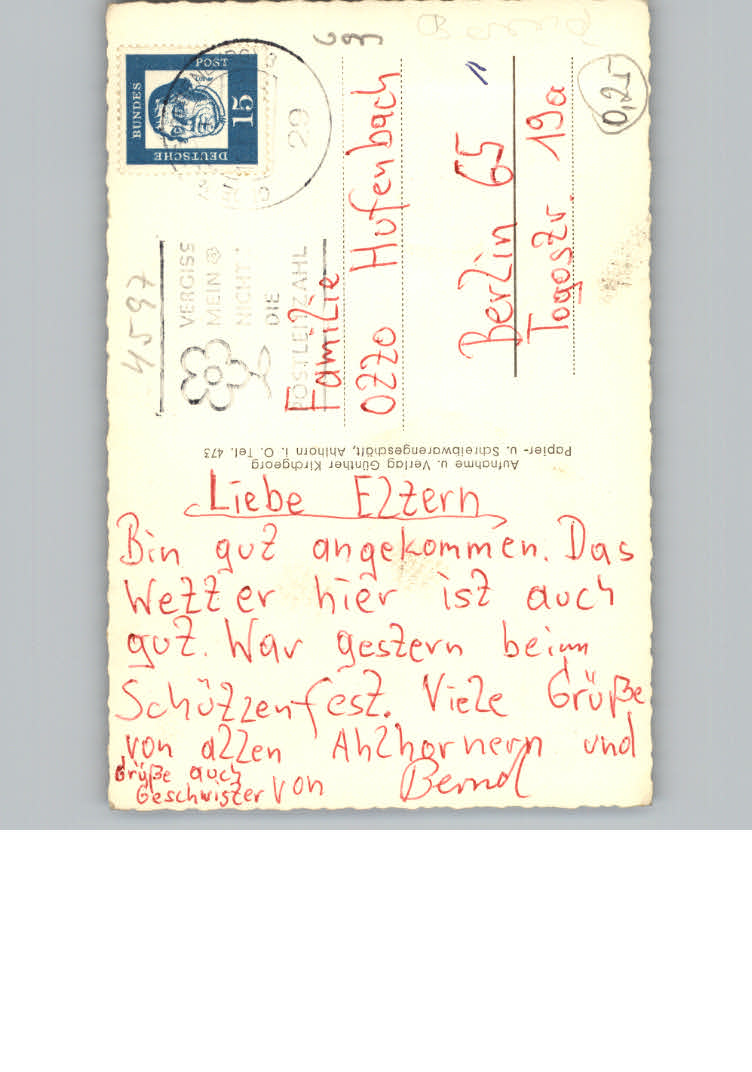 Liebe Eltern
Bin gut angekommen. Das
Wetter hier ist auch
gut. War gestern beim
Schützenfest. Viele Grüße
von allen Ahlhornern und
Grüße auch
Geschwister von Bernd
Aufnahme u. Verlag Günther Kirchgeorg
Papier- u. Schreibwarengeschäft, Ahlhorn i. O. Tel. 473
Familie
Otto Hufenbach
Berlin 65
Togostr 19a
DEUTSCHE
BUNDES
POST
15
29
VERGISS
MEIN
NICHT
DIE
POSTLEITZAHL
4597
0,25